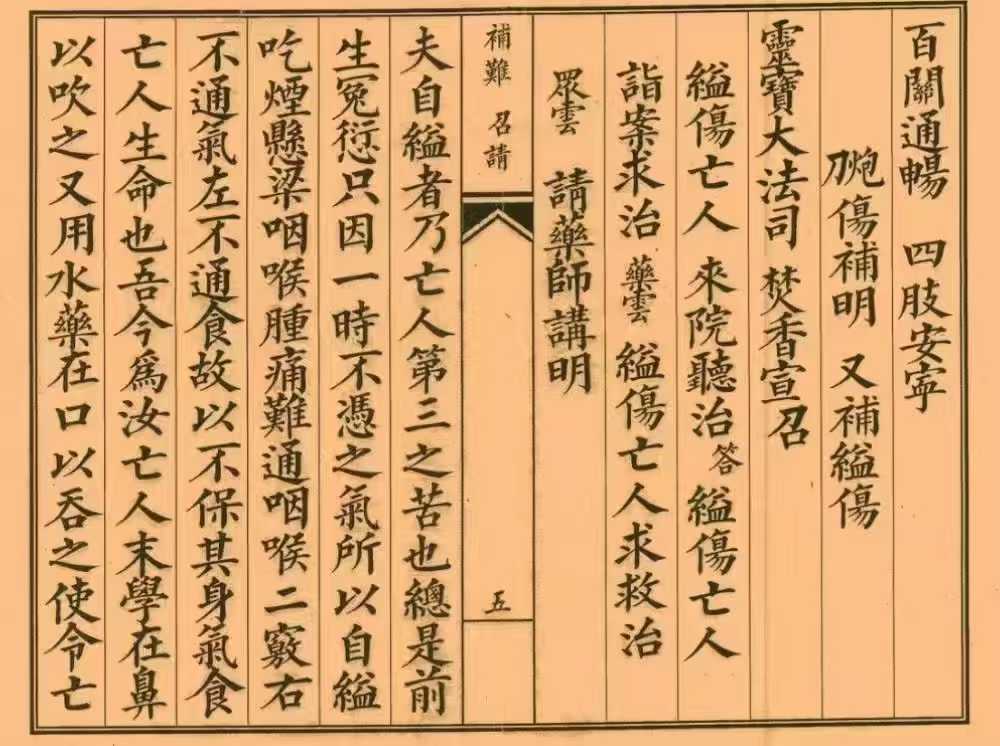 百關通暢 四肢安寧
傷補明 又補縊傷
靈寶大法司 焚香宣召
縊傷亡人 來院聽治 答 縊傷亡人
詣案求治 藥雲 縊傷亡人求救治
眾雲 請藥師講明
補難 召請 五
夫自縊者乃亡人第三之苦也總是前
生冤愆只因一時不憑之氣所以自縊
吃煙懸梁咽喉腫痛難通咽喉二竅右
不通氣左不通食故以不保其身氣食
亡人生命也吾今爲汝亡人末學在鼻
以吹之又用水藥在口以吞之使令亡